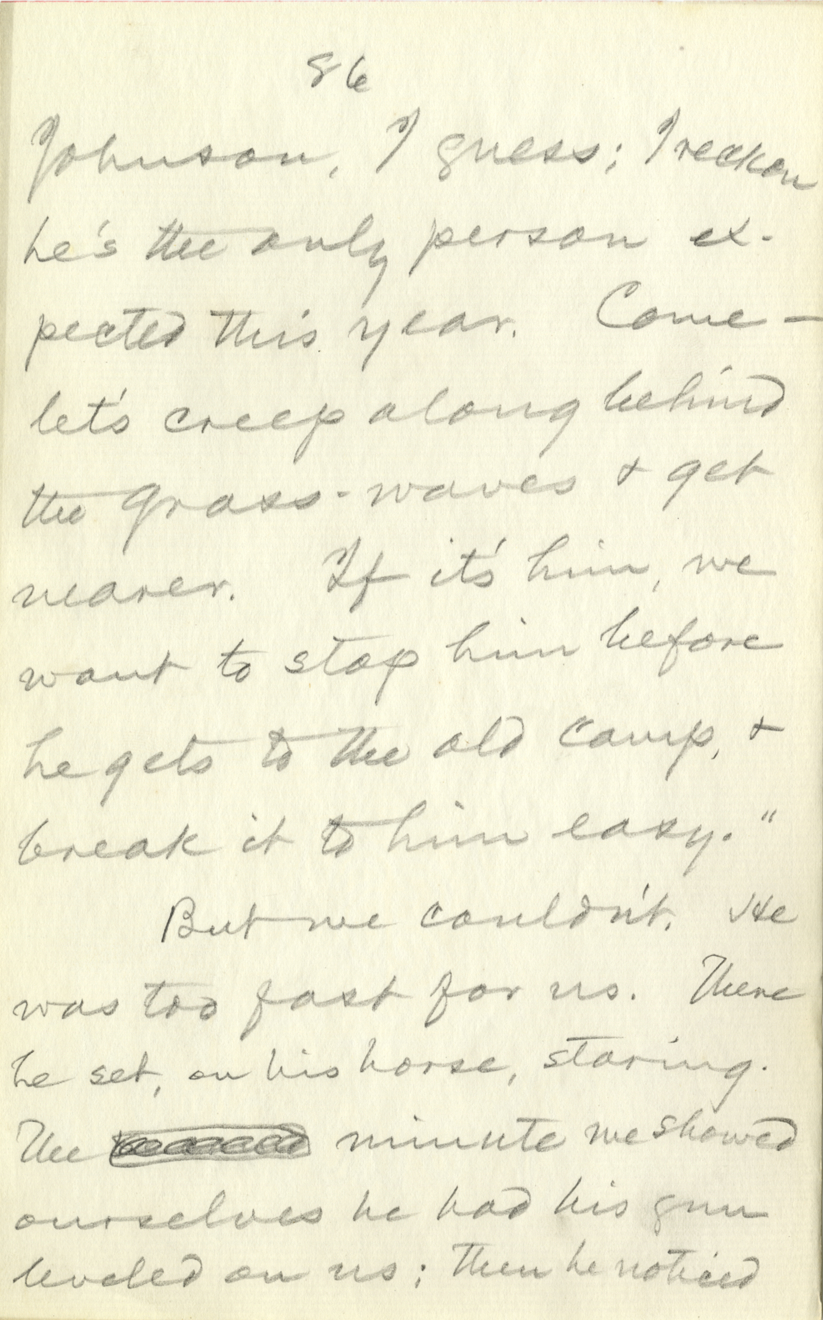 86
Johnson, I guess; I reckon
he's the only person ex-
pected this year. Come —
let's creep along behind
the grass-waves & get
nearer. If it's him, we
want to stop him before
he gets to the old camp, &
break it to him easy."
But we couldn't. He
was too fast for us. There
he set, on his horse, staring.
The minute we showed
ourselves he had his gun
leveled on us; then he noticed